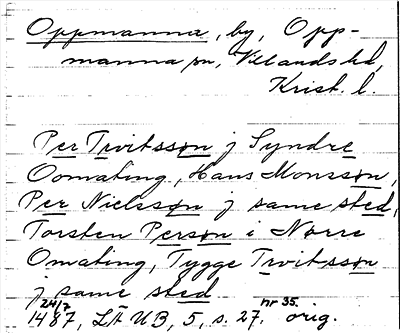 Oppmanna, by, Opp-
manna sn, Villands hd,
Krist. l.
Per Trvitsson j Syndre
Oomating, Hans Monsson,
Per Nielsson j same sted,
Torsten Person i Nørre
Omating, Tygge Trvitsson
j same sted
24/7 nr 35.
1487, LÅUB, 5, s. 27. orig.